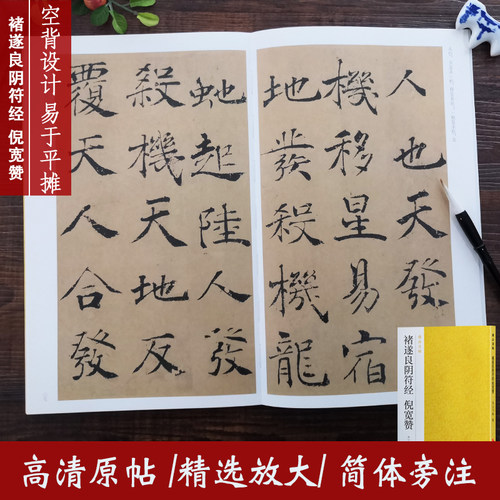 褚遂良阴符经 倪宽赞
空背设计 易于平摊
人也天發
機移星易宿
地發殺機龍
虵起陸人發
殺機天地反
覆天人合發
褚遂良阴符经 倪宽赞
高清原帖 /精选放大/ 简体旁注